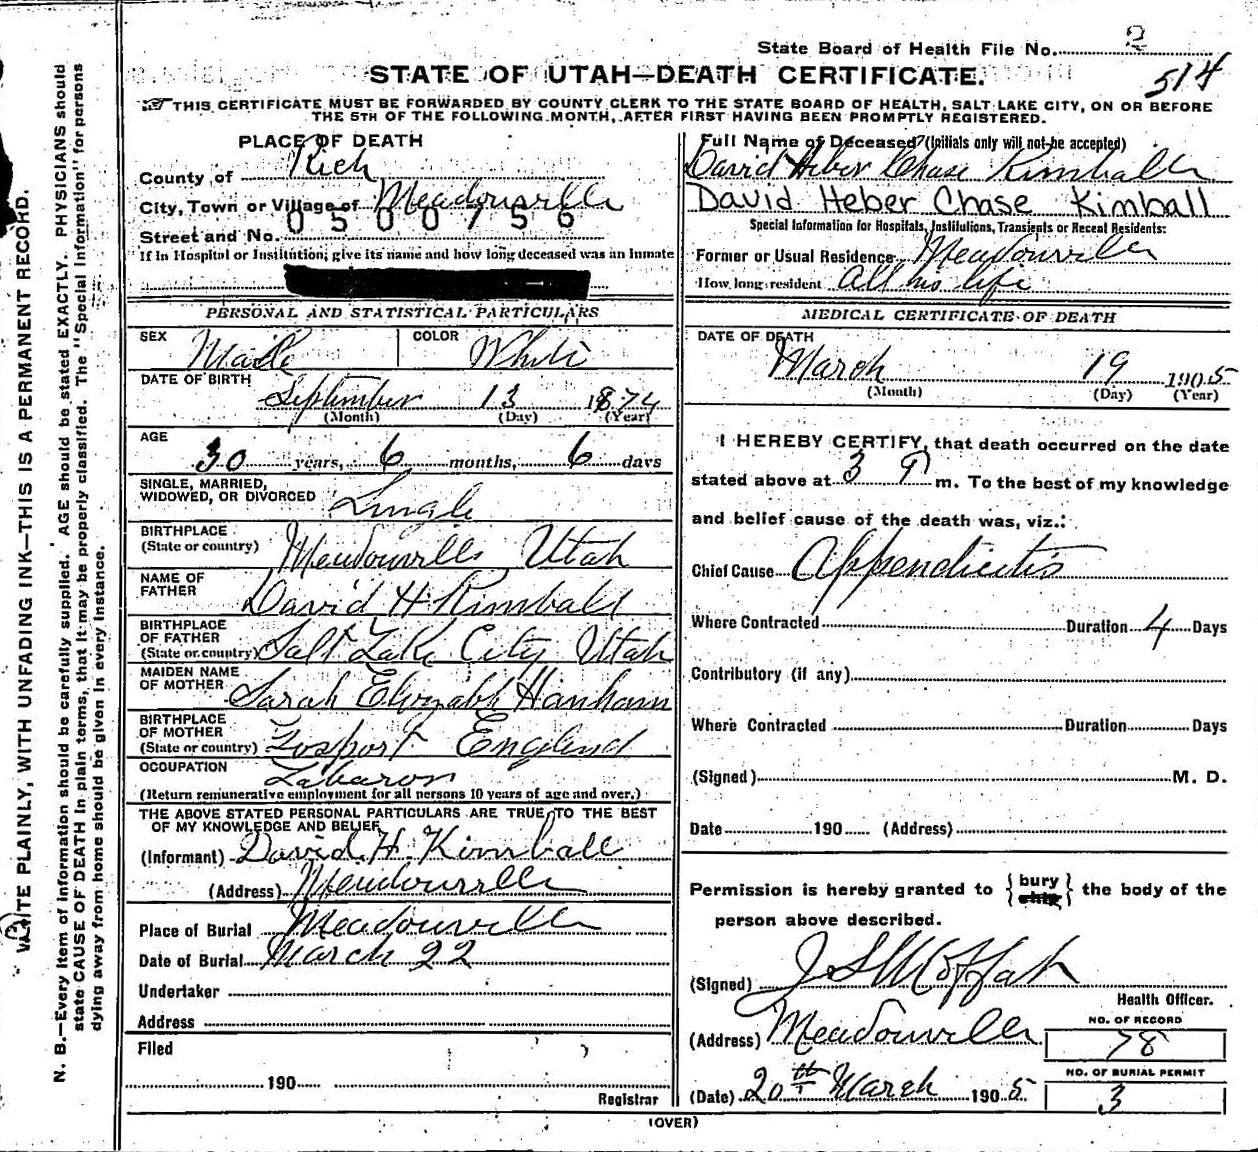 State Board of Health File No. 2
514
STATE OF UTAH—DEATH CERTIFICATE.
THIS CERTIFICATE MUST BE FORWARDED BY COUNTY CLERK TO THE STATE BOARD OF HEALTH, SALT LAKE CITY, ON OR BEFORE
THE 5TH OF THE FOLLOWING MONTH, AFTER FIRST HAVING BEEN PROMPTLY REGISTERED.
PLACE OF DEATH
County of Rich
City, Town or Village of Meadowville
0500756
Street and No.
If in Hospital or Institution, give its name and how long deceased was an Inmate
PERSONAL AND STATISTICAL PARTICULARS
SEX Male COLOR White
DATE OF BIRTH
September 13 1874
(Month) (Day) (Year)
AGE
30 years, 6 months, 6 days
SINGLE, MARRIED,
WIDOWED, OR DIVORCED Single
BIRTHPLACE
(State or country) Meadowville Utah
NAME OF
FATHER David H Kimball
BIRTHPLACE
OF FATHER
(State or country) Salt Lake City Utah
MAIDEN NAME
OF MOTHER Sarah
BIRTHPLACE
OF MOTHER
(State or country) Gosport England
OCCUPATION
(Return remunerative employment for all persons 10 years of age and over.)
THE ABOVE STATED PERSONAL PARTICULARS ARE TRUE TO THE BEST
OF MY KNOWLEDGE AND BELIEF
(Informant) David H. Kimball
(Address) Meadowville
Place of Burial Meadowville
Date of Burial March 22
Undertaker
Address
Filed
190
Registrar
Full Name of Deceased (Initials only will not be accepted)
David Heber Chase Kimball
David Heber Chase Kimball
Special Information for Hospitals, Institutions, Transients or Recent Residents:
Former or Usual Residence Meadowville
How long resident All his life
MEDICAL CERTIFICATE OF DEATH
DATE OF DEATH
March 19 1905
(Month) (Day) (Year)
I HEREBY CERTIFY, that death occurred on the date
stated above at 3 P m. To the best of my knowledge
and belief cause of the death was, viz.:
Chief Cause Appendicitis
Where Contracted Duration 4 Days
Contributory (if any)
Where Contracted Duration Days
(Signed) M. D.
Date 190 (Address)
Permission is hereby granted to {bury ship} the body of the
person above described.
(Signed) J S Moffah
Health Officer.
(Address) Meadowville
NO. OF RECORD
78
NO. OF BURIAL PERMIT
3
(Date) 20th March 1905
(OVER)
WRITE PLAINLY, WITH UNFADING INK—THIS IS A PERMANENT RECORD.
N. B.—Every item of information should be carefully supplied. AGE should be stated EXACTLY. PHYSICIANS should
state CAUSE OF DEATH in plain terms, that it may be properly classified. The "Special Information" for persons
dying away from home should be given in every instance.